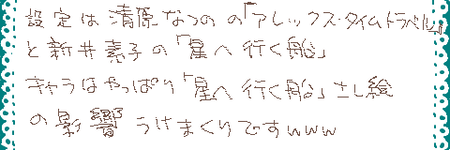 設定は清原なつのの「アレックス・タイムトラベル」
と新井素子の「星へ行く船」
キャラはやっぱり「星へ行く船」さし絵
の影響うけまくりですwww